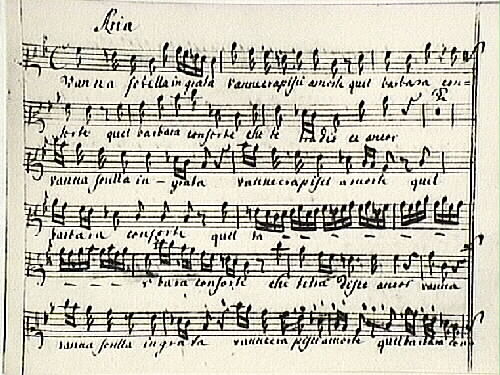 Aria
Vanna sorella ingrata vanne e rapisci a morte quel barbara con=
sorte quel barbara consorte che te tradio et ancor
vanna sorella in - grata vanne e rapisci a morte quel
barbara consorte quel ba
r bara consorte che te ancor vanna
vanna sorella ingrata vanne e rapisci a morte quel barbara con